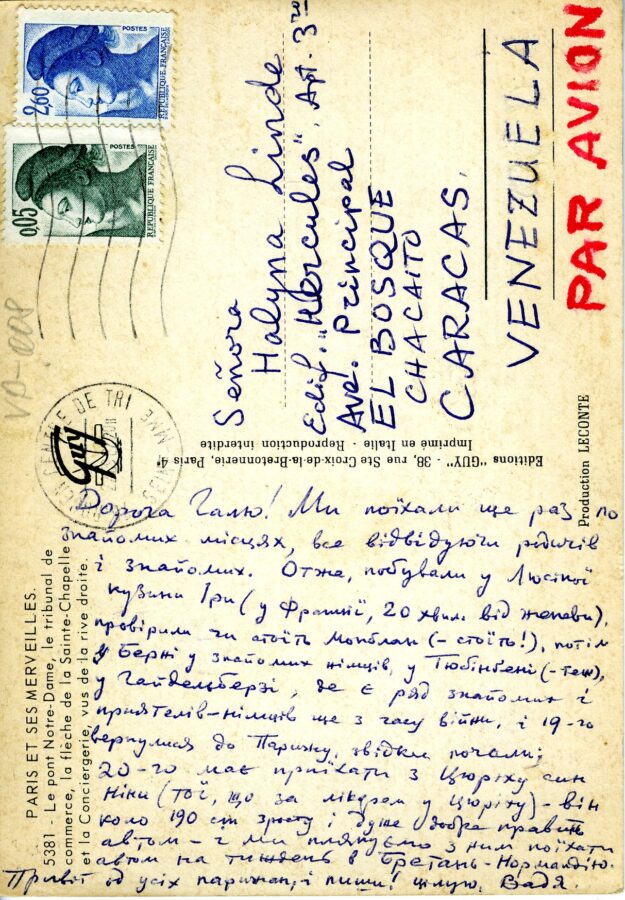 POSTES
2,60
REPUBLIQUE FRANÇAISE
POSTES
0,05
REPUBLIQUE FRANÇAISE
PAR AVION
VENEZUELA
Señora
Halyna Linde
Edif. „Hercules“, Apt. 3ʳᵒ
Ave. Principal
EL BOSQUE
CHACAITO
CARACAS.
CENTRE DE TRI
Guy
Editions "GUY" - 38, rue Ste Croix-de-la-Bretonnerie, Paris 4ᵉ
Imprimé en Italie - Reproduction interdite
Production LECONTE
PARIS ET SES MERVEILLES.
5381 - Le pont Notre-Dame, le tribunal de
commerce, la flèche de la Sainte-Chapelle
et la Conciergerie, vus de la rive droite.
Дорога Галю! Ми поїхали ще раз по
знайомих місцях, все відвідуючи родичів
і знайомих. Отже, побували у Люсіної
кузини Іри (у Франції, 20 хвил. від Женеви),
провірили чи стоїть Монблан (- стоїть!), потім
у Берні у знайомих німців, у Тюбінґені (- теж),
у Гайдельберзі, де є ряд знайомих і
приятелів-німців ще з часу війни, і 19-го
вернулися до Парижу, звідки почали;
20-го має приїхати з Цюріху син
Ніки (той, що за лікаря у Цюріху) - він
коло 190 см зросту і дуже добре править
автом - і ми плянуємо з ним поїхати
автом на тиждень в Бретань-Нормандію.
Привіт од усіх парижан, і пиши! Цілую, Вадя.